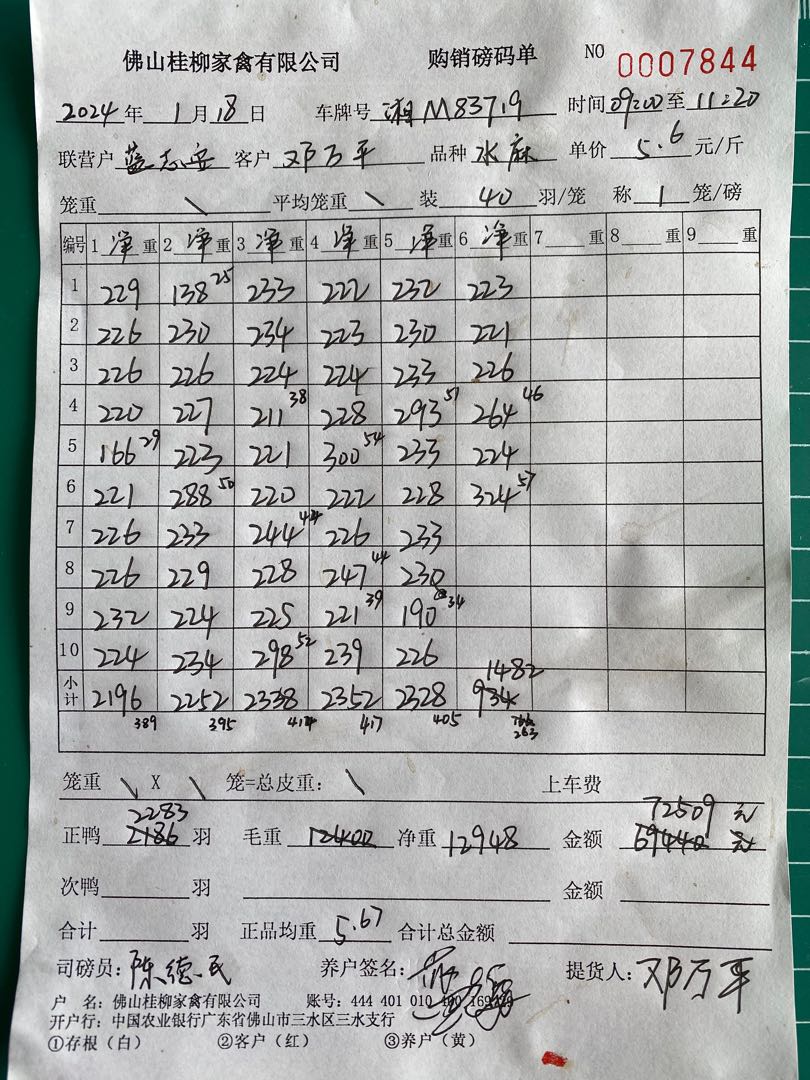 佛山桂柳家禽有限公司 购销磅码单 NO 0007844
2024 年 1 月 18 日 车牌号 湘M83719 时间 09:00 至 11:20
联营户 客户 邓万平 品种 水麻 单价 5.6 元/斤
笼重 \ 平均笼重 \ 装 40 羽/笼 称 1 笼/磅
编号 1 净 重 2 净 重 3 净 重 4 净 重 5 净 重 6 净 重 7 重 8 重 9 重
1 229 138 25 233 222 232 223
2 226 230 234 223 230 221
3 226 226 224 224 233 226
4 220 227 211 38 228 293 51 264 46
5 166 29 223 221 300 54 233 224
6 221 288 50 220 222 228 324 57
7 226 233 244 44 226 233
8 226 229 228 247 44 230
9 232 224 225 221 39 190 34
10 224 234 298 52 239 226
1482
小计 2196 2252 2338 2352 2328 934
389 395 414 417 405 263
笼重 \ X \ 笼=总皮重: \ 上车费
2283 72509 元
正鸭 2186 羽 毛重 12400 净重 12948 金额 69440 元
次鸭 羽 金额
合计 羽 正品均重 5.67 合计总金额
司磅员: 陈德民 养户签名: 提货人: 邓万平
户 名: 佛山桂柳家禽有限公司 账号: 444 401 010
开户行: 中国农业银行广东省佛山市三水区三水支行
①存根(白) ②客户(红) ③养户(黄)